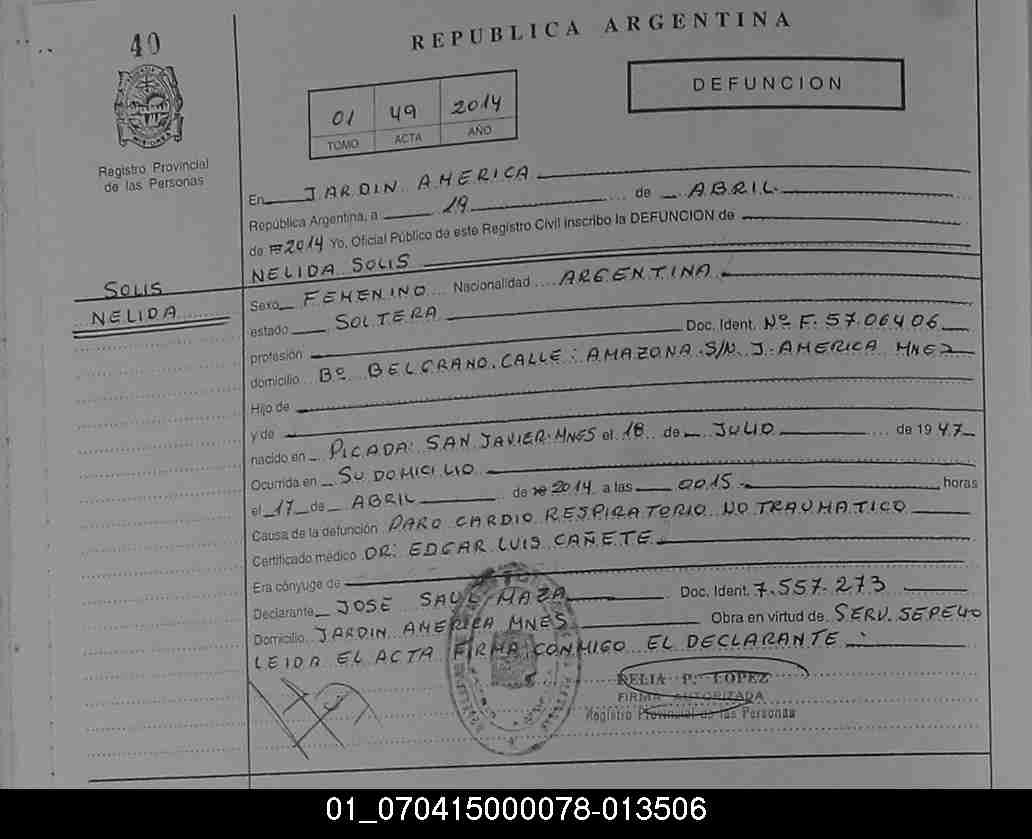 40
REPUBLICA ARGENTINA
DEFUNCION
01 49 2014
TOMO ACTA AÑO
Registro Provincial
de las Personas
En JARDIN AMERICA
República Argentina, a 19 de ABRIL
de 2014 Yo, Oficial Público de este Registro Civil inscribo la DEFUNCION de
NELIDA SOLIS
SOLIS
NELIDA
Sexo FEMENINO Nacionalidad ARGENTINA
estado SOLTERA
profesión Doc. Ident. Nº F. 5706406
domicilio Bº BELGRANO. CALLE: AMAZONA. S/N. J. AMERICA MNEZ
Hijo de
y de
nacido en PICADA: SAN JAVIER. MNES el 18 de JULIO de 1947
Ocurrida en SU DOMICILIO
el 17 de ABRIL de 2014 a las 0015 horas
Causa de la defunción PARO CARDIO RESPIRATORIO NO TRAUMATICO
Certificado médico DR: EDGAR LUIS CAÑETE
Era cónyuge de
Declarante JOSE SAUL MAZA Doc. Ident. 7.557.273
Domicilio JARDIN AMERICA MNES Obra en virtud de SERV. SEPELIO
LEIDA EL ACTA FIRMA CONMIGO EL DECLARANTE:
DELIA P. LOPEZ
FIRMA AUTORIZADA
Registro Provincial de las Personas
01_070415000078-013506